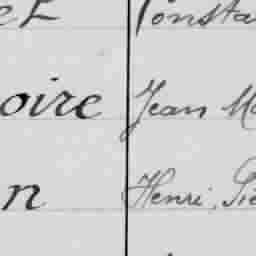 et Consta
oire Jean Ma
n Henri, Pie